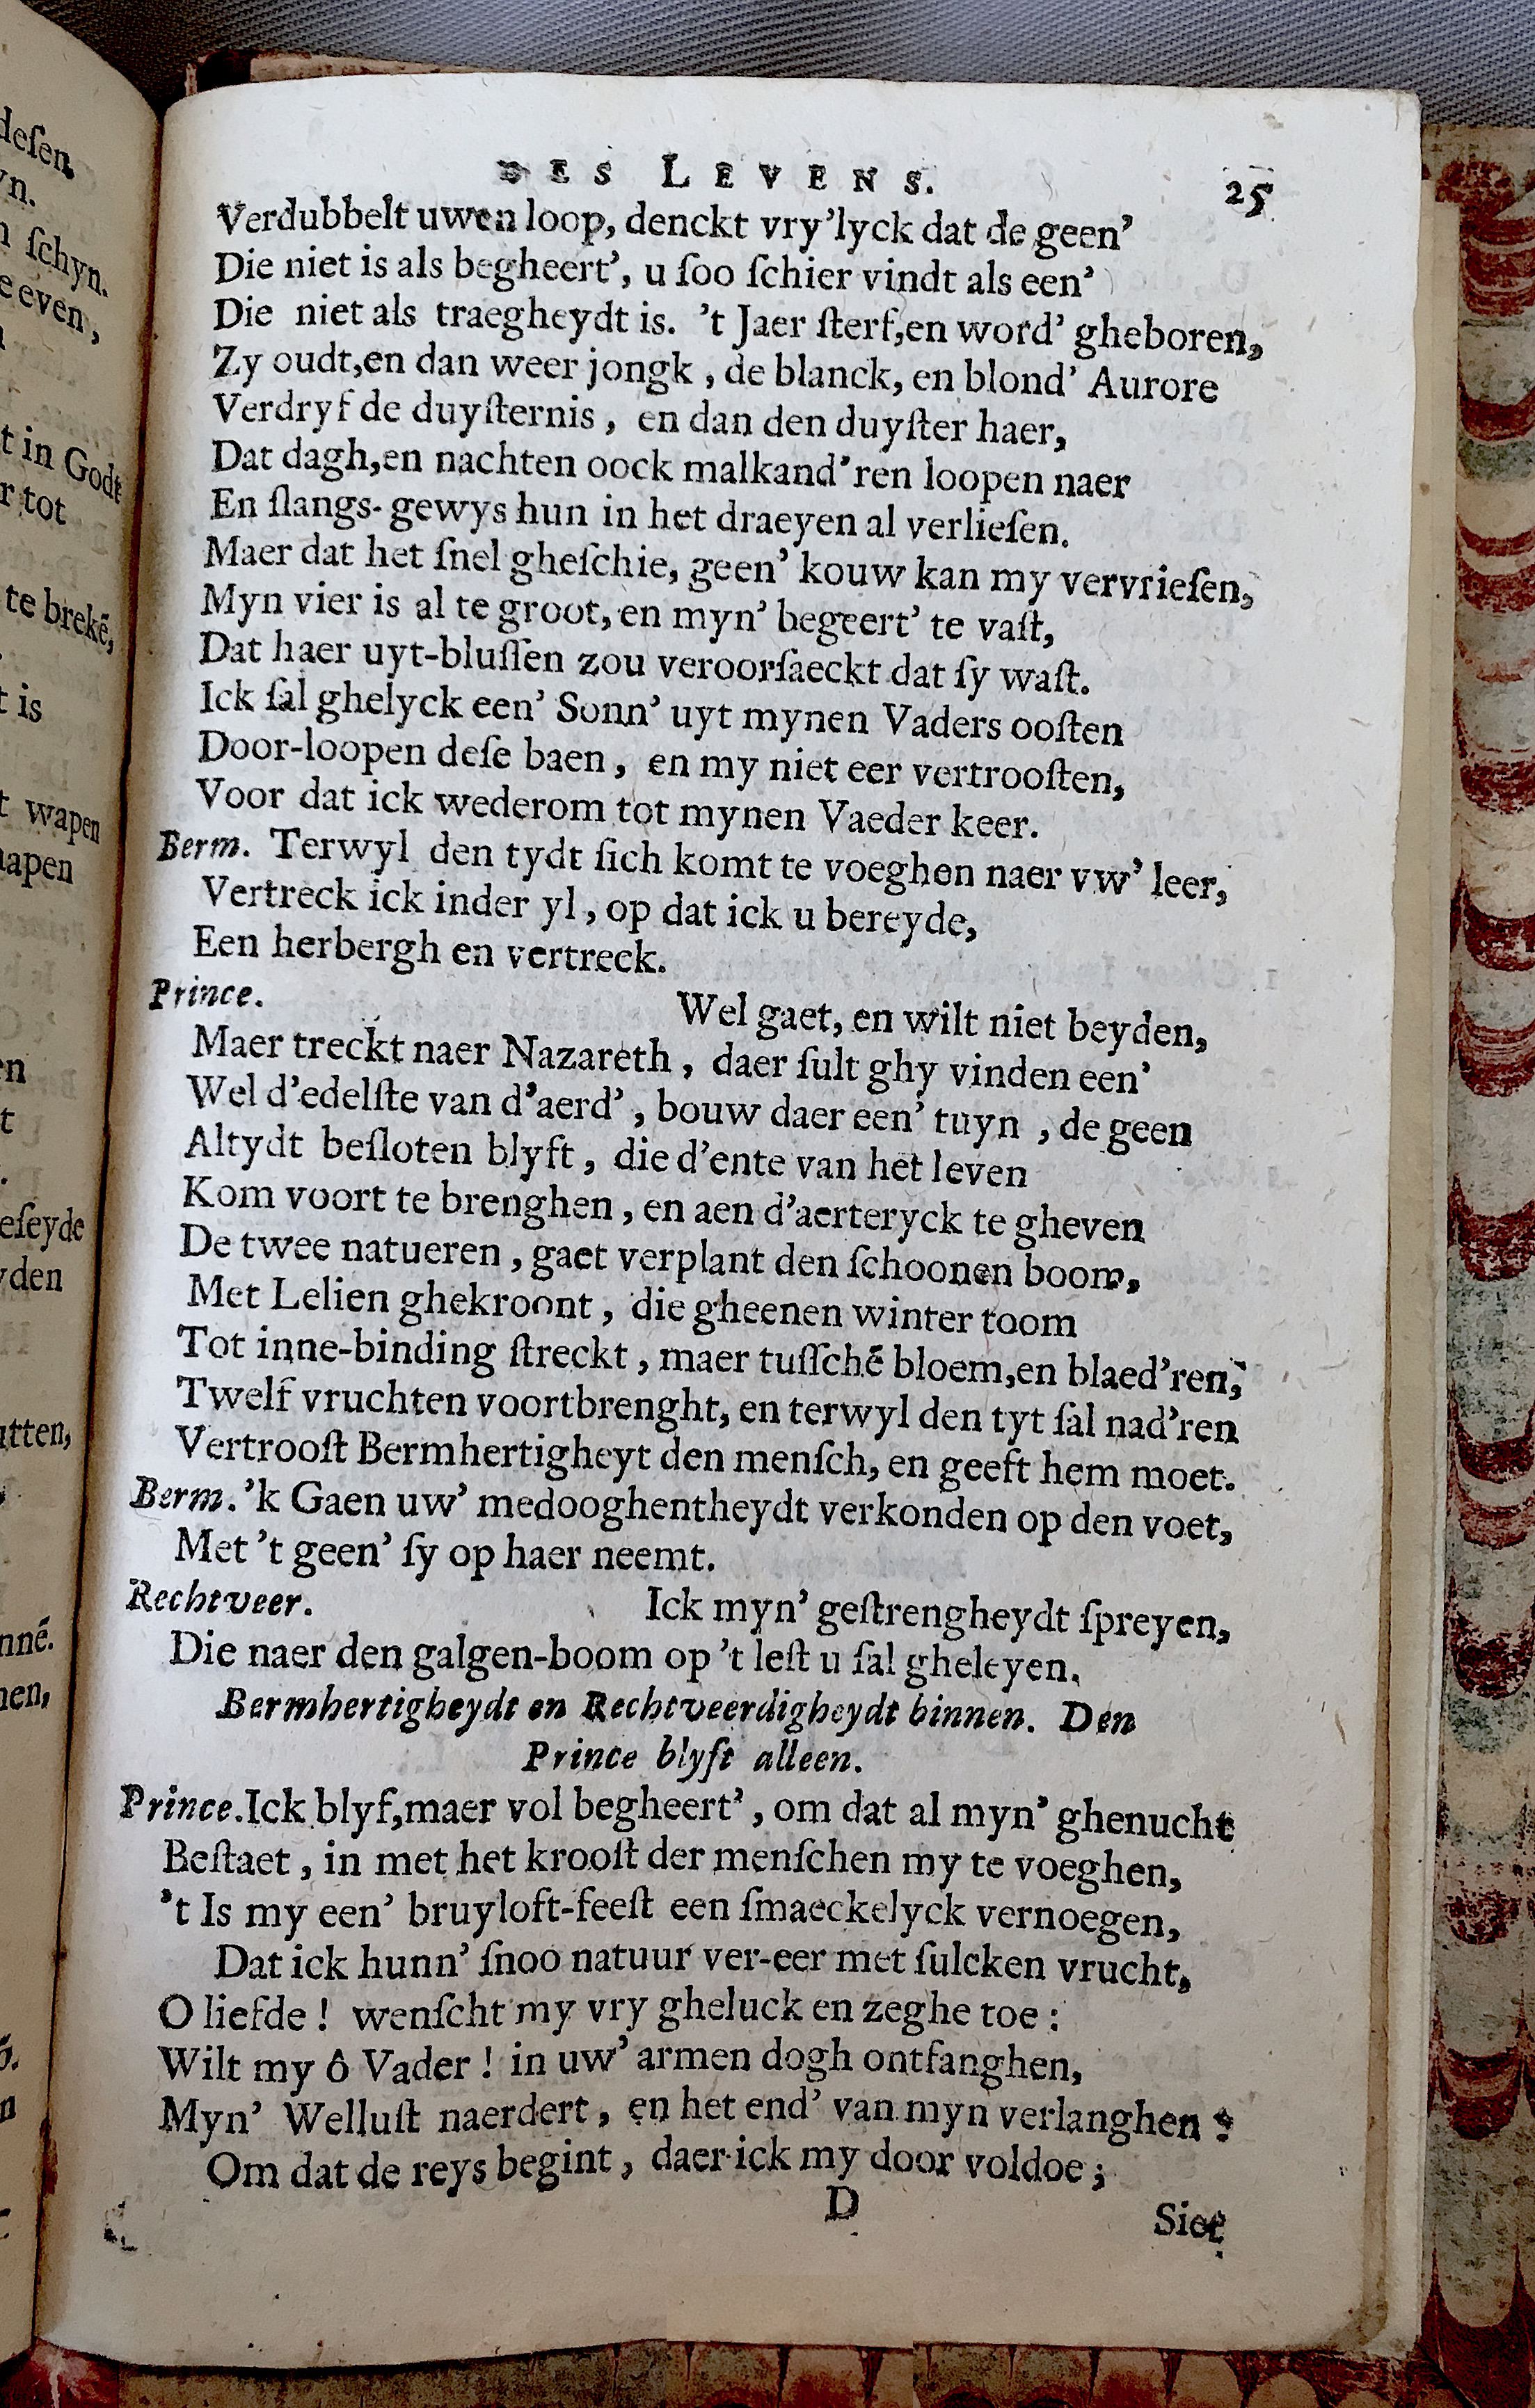 DES LEVENS. 25
Verdubbelt uwen loop, denckt vry'lyck dat de geen'
Die niet is als begheert', u ſoo ſchier vindt als een'
Die niet als traegheydt is. 't Jaer ſterf,en word' gheboren,
Zy oudt,en dan weer jongk , de blanck, en blond' Aurore
Verdryf de duyſternis , en dan den duyſter haer,
Dat dagh,en nachten oock malkand'ren loopen naer
En ſlangs-gewys hun in het draeyen al verlieſen.
Maer dat het ſnel gheſchie, geen' kouw kan my vervrieſen,
Myn vier is al te groot, en myn' begeert' te vaſt,
Dat haer uyt-bluſſen zou veroorſaeckt dat ſy waſt.
Ick ſal ghelyck een' Sonn' uyt mynen Vaders ooſten
Door-loopen deſe baen , en my niet eer vertrooſten,
Voor dat ick wederom tot mynen Vaeder keer.
Berm. Terwyl den tydt ſich komt te voeghen naer vw' leer,
Vertreck ick inder yl , op dat ick u bereyde,
Een herbergh en vertreck.
Prince. Wel gaet, en wilt niet beyden,
Maer treckt naer Nazareth , daer ſult ghy vinden een'
Wel d'edelſte van d'aerd' , bouw daer een' tuyn , de geen
Altydt beſloten blyft , die d'ente van het leven
Kom voort te brenghen , en aen d'aerteryck te gheven
De twee natueren , gaet verplant den ſchoonen boom,
Met Lelien ghekroont , die gheenen winter toom
Tot inne-binding ſtreckt , maer tuſſchē bloem,en blaed'ren,
Twelf vruchten voortbrenght, en terwyl den tyt ſal nad'ren
Vertrooſt Bermhertigheyt den menſch, en geeft hem moet.
Berm. 'k Gaen uw' medooghentheydt verkonden op den voet,
Met 't geen' ſy op haer neemt.
Rechtveer. Ick myn' geſtrengheydt ſpreyen,
Die naer den galgen-boom op 't leſt u ſal gheleyen.
Bermhertigheydt en Rechtveerdigheydt binnen. Den
Prince blyft alleen.
Prince. Ick blyf,maer vol begheert' , om dat al myn' ghenucht
Beſtaet , in met het krooſt der menſchen my te voeghen,
't Is my een' bruyloft-feeſt een ſmaeckelyck vernoegen,
Dat ick hunn' ſnoo natuur ver-eer met ſulcken vrucht,
O liefde ! wenſcht my vry gheluck en zeghe toe :
Wilt my ô Vader ! in uw' armen dogh ontfanghen,
Myn' Welluſt naerdert , en het end' van myn verlanghen ?
Om dat de reys begint , daer ick my door voldoe ;
D Siet
deſen,
yn.
ſchyn.
even,
t in Godt
r tot
te brekē,
t is
t wapen
apen
en
t
eſeyde
den
utten,
nnē.
nen,